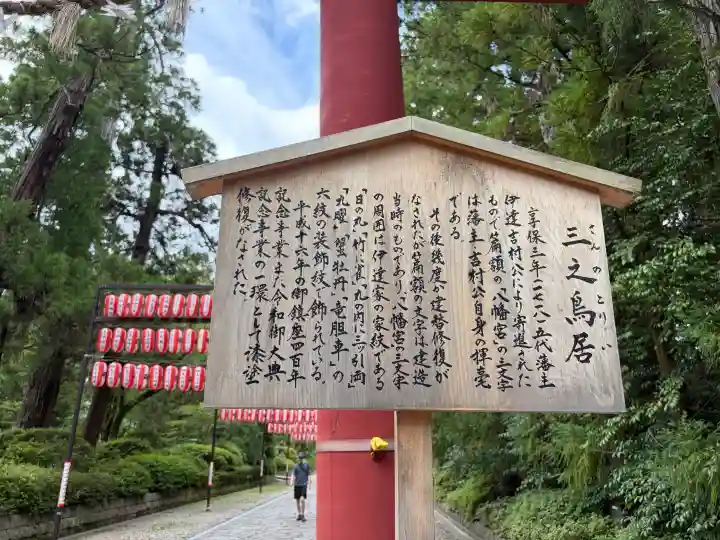 さんのとりい
三之鳥居
享保三年（一七一八）五代藩主
伊達吉村公により寄進された
もので扁額の「八幡宮」の三文字
は藩主吉村公自身の揮毫
である
その後幾度か建替修復が
なされたが扁額の文字は建造
当時のものであり、「八幡宮」の三文字
の周囲は伊達家の家紋である
「日の丸」「竹に雀」「丸の内に三つ引両」
「九曜」「蟹牡丹」「竜胆車」の
六紋の装飾紋で飾られている。
平成十六年の御鎮座四百年
記念事業また令和御大典
記念事業の一環として漆塗
修復がなされた。